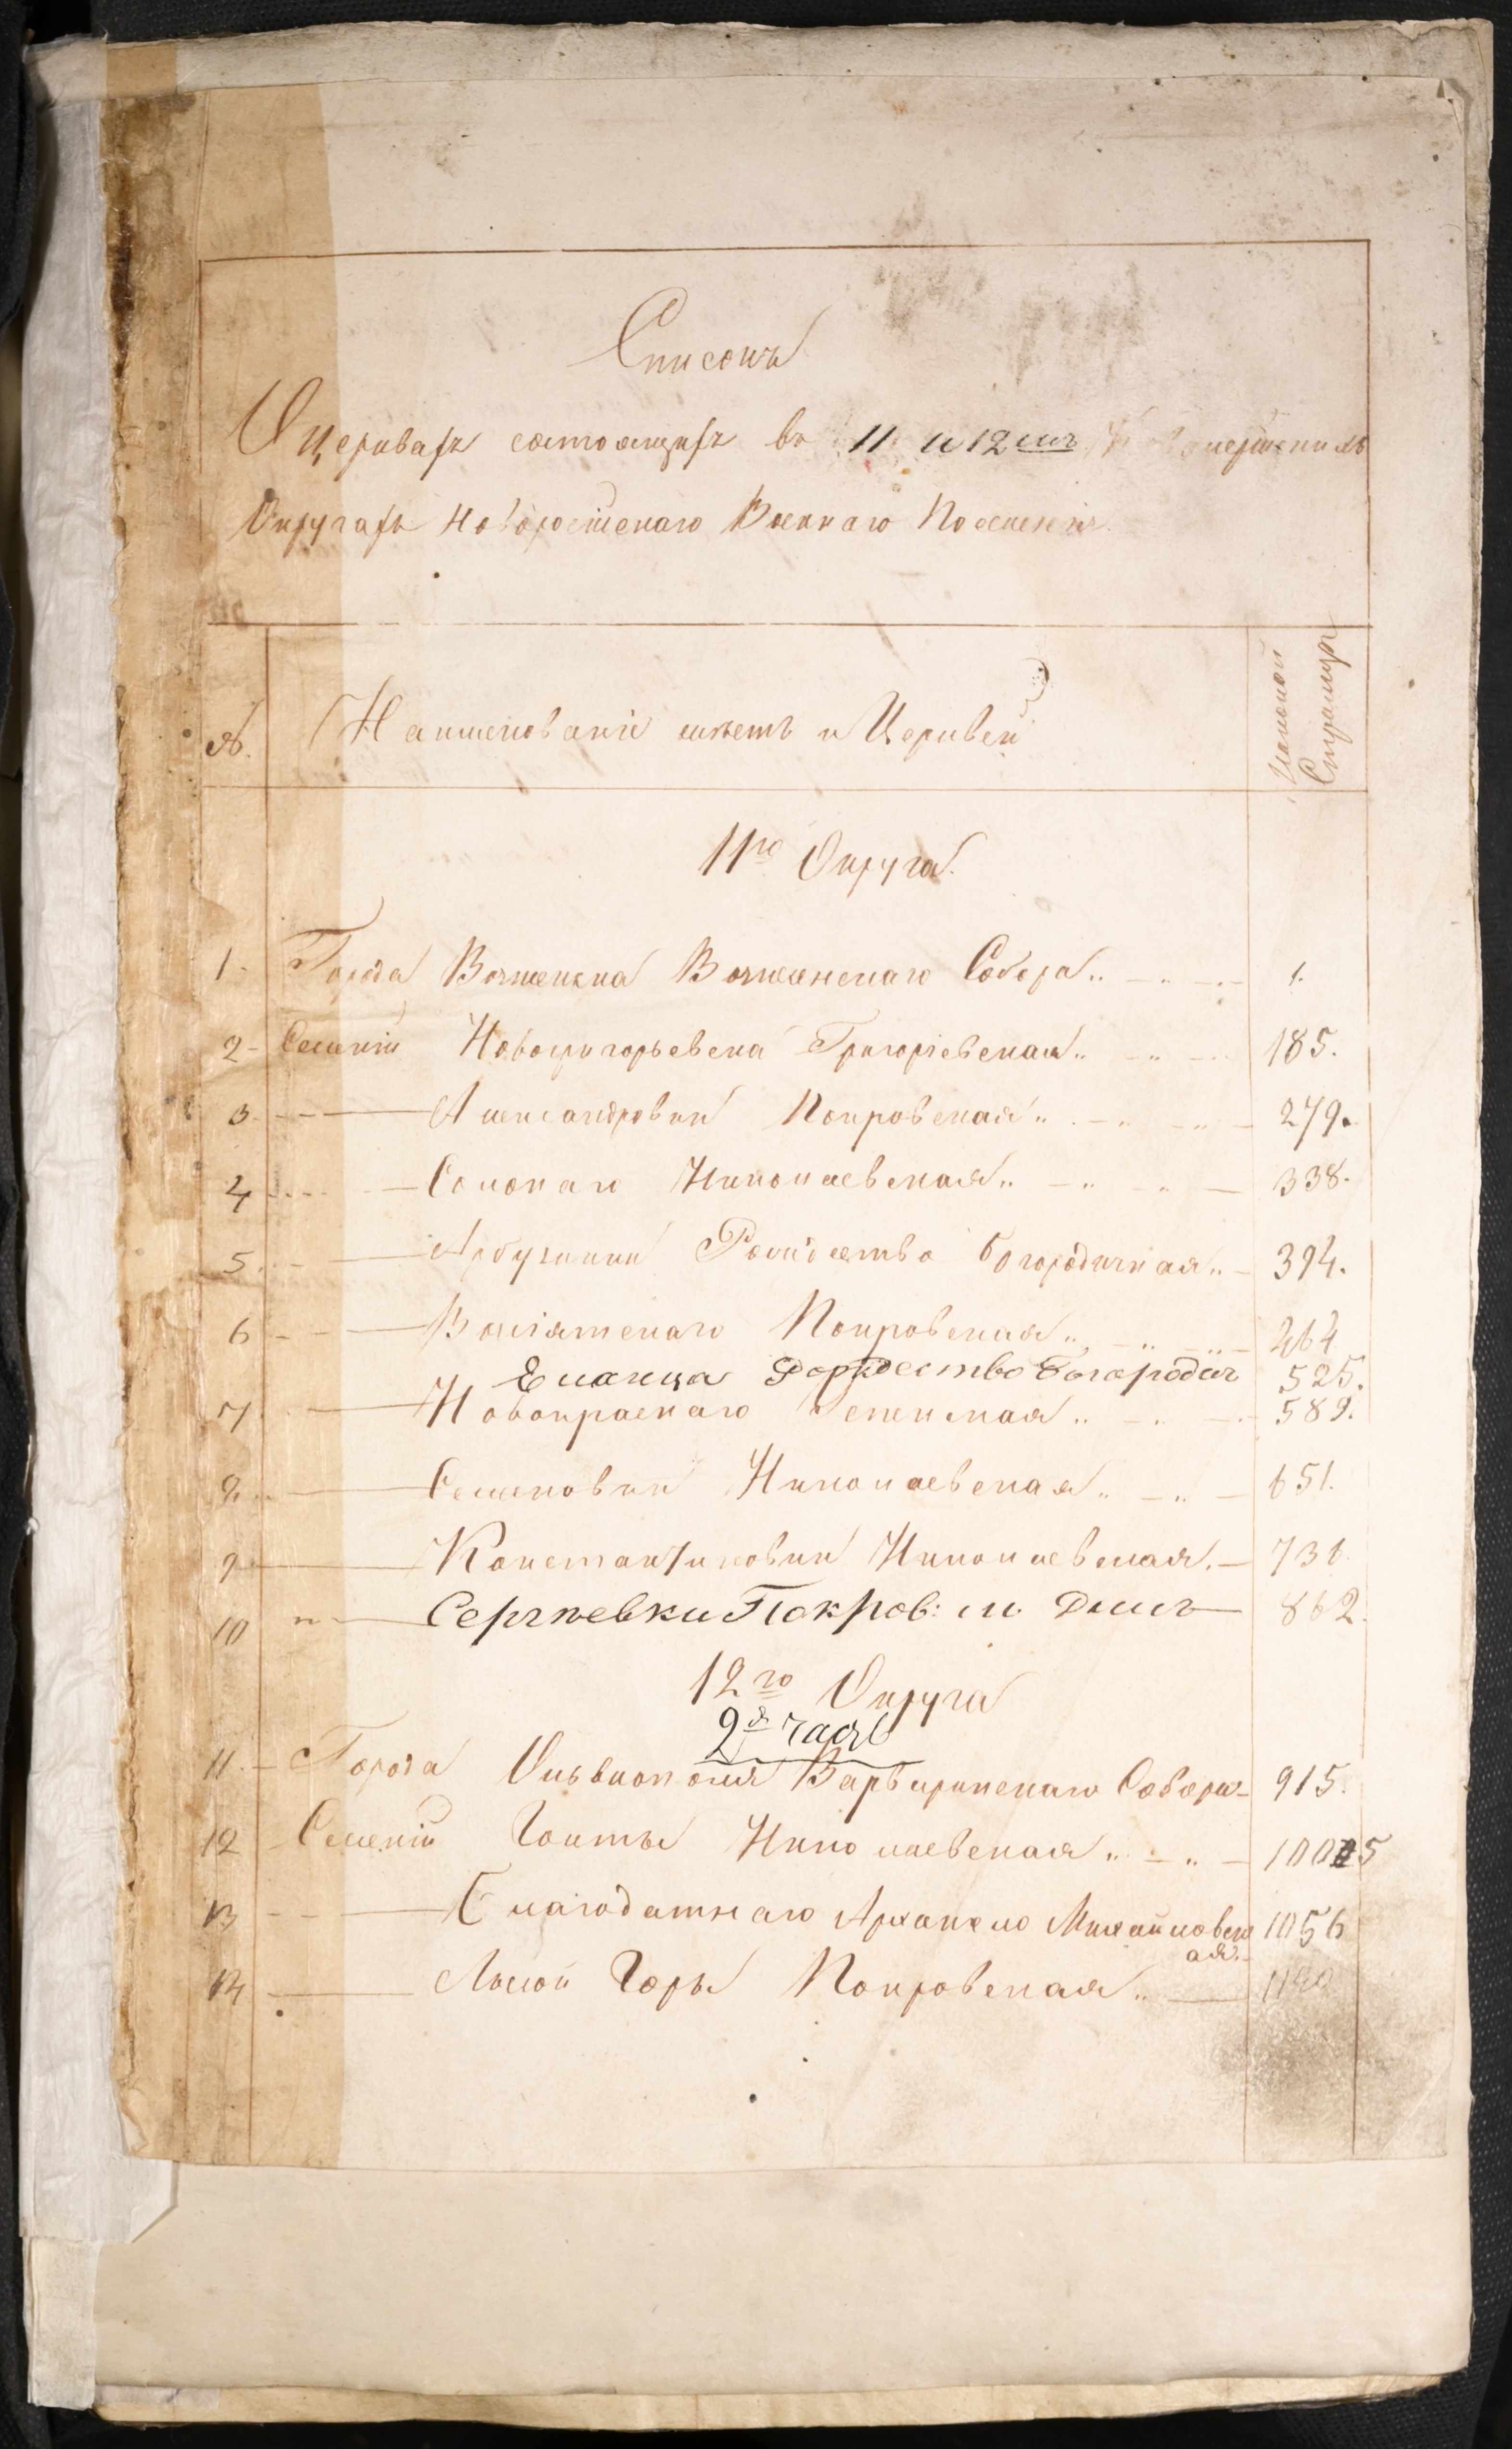 Списокъ
О церквахъ состоящихъ въ 11 и 12мъ
Округахъ Новороссійскаго Военнаго Поселенія.
№.
Наименованіе мѣстъ и Церквей
На какой
Страницѣ
11го Округа.
1. Города Вознесенска Вознесенскаго Собора „ — „ — 1.
2 - Селеній Новогригорьевска Григоріевская „ — „ — 185.
3 — Александровки Покровская „ — „ — „ — 279.
4 — Соколаго Николаевская „ — „ — „ — 338.
5. — Арбузинки Рождество Богородичная „ — 394.
6 — Вошіятскаго Покровская „ — „ — „ — 464
Еланца Рождество Богородич 525.
7 — Новокраснаго Успенская „ — „ — 589.
8. — Семеновки Николаевская „ — „ — 651.
9 — Константиновки Николаевская. — 731.
10 „ — Сергѣевки Покров: м. Домъ — 862.
12го Округа
2я часть
11. - Города Ольвіополя Варваринскаго Собора - 915.
12 Селеній Голты Николаевская „ — „ — 10015
13 — Благодатнаго Архангело Михайловск 1056
ая. -
14 — Лысой Горы Покровская „ — 1120